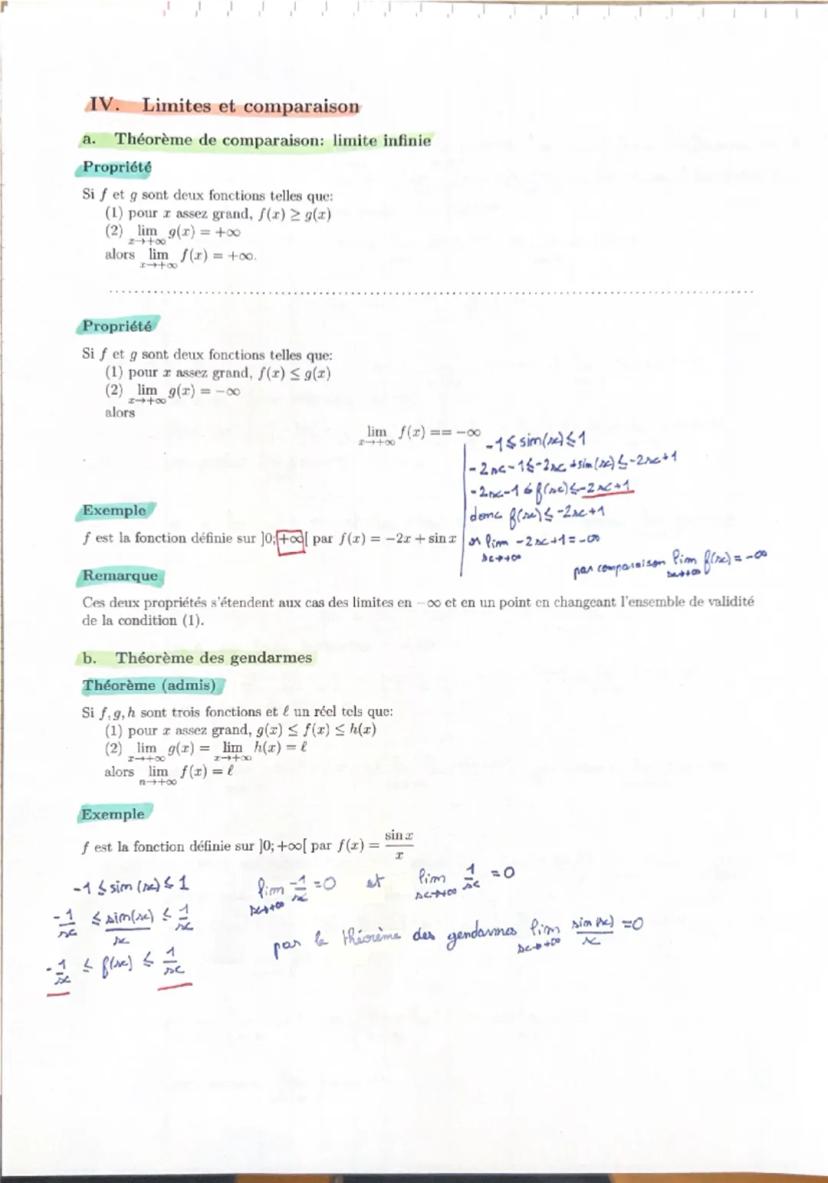 IV. Limites et comparaison
a. Théorème de comparaison: limite infinie
Propriété
Si f et g sont deux fonctions telles que:
(1) pour x assez grand, f(x) ≥ g(x)
(2) lim g(x) = +∞
x→+∞
alors lim f(x) = +∞.
x→+∞
Propriété
Si f et g sont deux fonctions telles que:
(1) pour x assez grand, f(x) ≤ g(x)
(2) lim g(x) = −∞
x→+∞
alors
lim f(x) == −∞
x→+∞
-1 ≤ sin(x) ≤ 1
-2x-1 ≤ -2x+sin(x) ≤ -2x+1
-2x-1 ≤ f(x) ≤ -2x+1
donc f(x) ≤ -2x+1
or lim -2x+1 = -∞
x→+∞
par comparaison lim f(x) = -∞
x→+∞
Exemple
f est la fonction définie sur ]0; +∞[ par f(x) = −2x + sin x
Remarque
Ces deux propriétés s'étendent aux cas des limites en −∞ et en un point en changeant l'ensemble de validité
de la condition (1).
b. Théorème des gendarmes
Théorème (admis)
Si f, g, h sont trois fonctions et ℓ un réel tels que:
(1) pour x assez grand, g(x) ≤ f(x) ≤ h(x)
(2) lim g(x) = lim h(x) = ℓ
x→+∞ x→+∞
alors lim f(x) = ℓ
n→+∞
Exemple
f est la fonction définie sur ]0; +∞[ par f(x) = sin x / x
-1 ≤ sin(x) ≤ 1
-1/x ≤ sin(x)/x ≤ 1/x
-1/x ≤ f(x) ≤ 1/x
lim -1/x = 0 et lim 1/x = 0
x→+∞ x→+∞
par le théorème des gendarmes lim sin(x)/x = 0
x→+∞